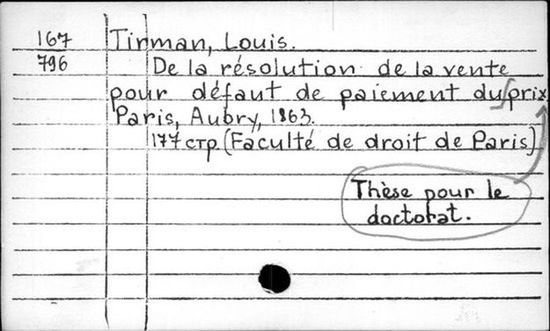 167 Tirman, Louis.
796 De la résolution de la vente
pour défaut de paiement du prix
Paris, Aubry, 1863.
177 стр. (Faculté de droit de Paris)
Thèse pour le
doctorat.